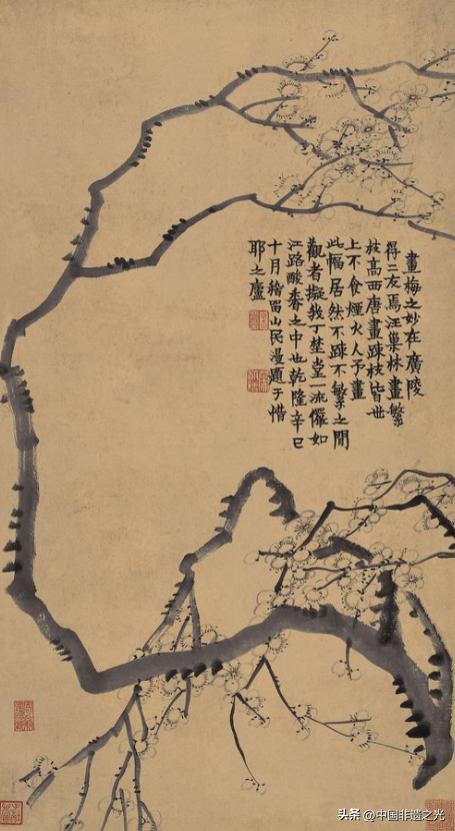 畫梅之妙在廣陵
得二友焉汪巢林畫繁
枝高西唐畫疎枝皆世
上不食煙火人予畫
此幅居然不疎不繁之間
觀者擬我丁埜堂一流儼如
江路酸香之中也乾隆辛巳
十月稽畱山民漫題于惜
耶之廬
头条 @中国非遗之光